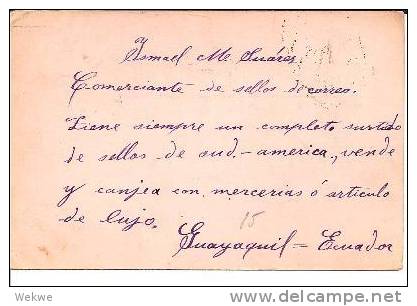 Ismael Me Suáres
Comerciante de sellos de correo.
Tiene siempre un completo surtido
de sellos de sud-america, vende
y canjea con mercerias ó articulo
de lujo.
15
Guayaquil = Ecuador
Wekwe
delcampe.net